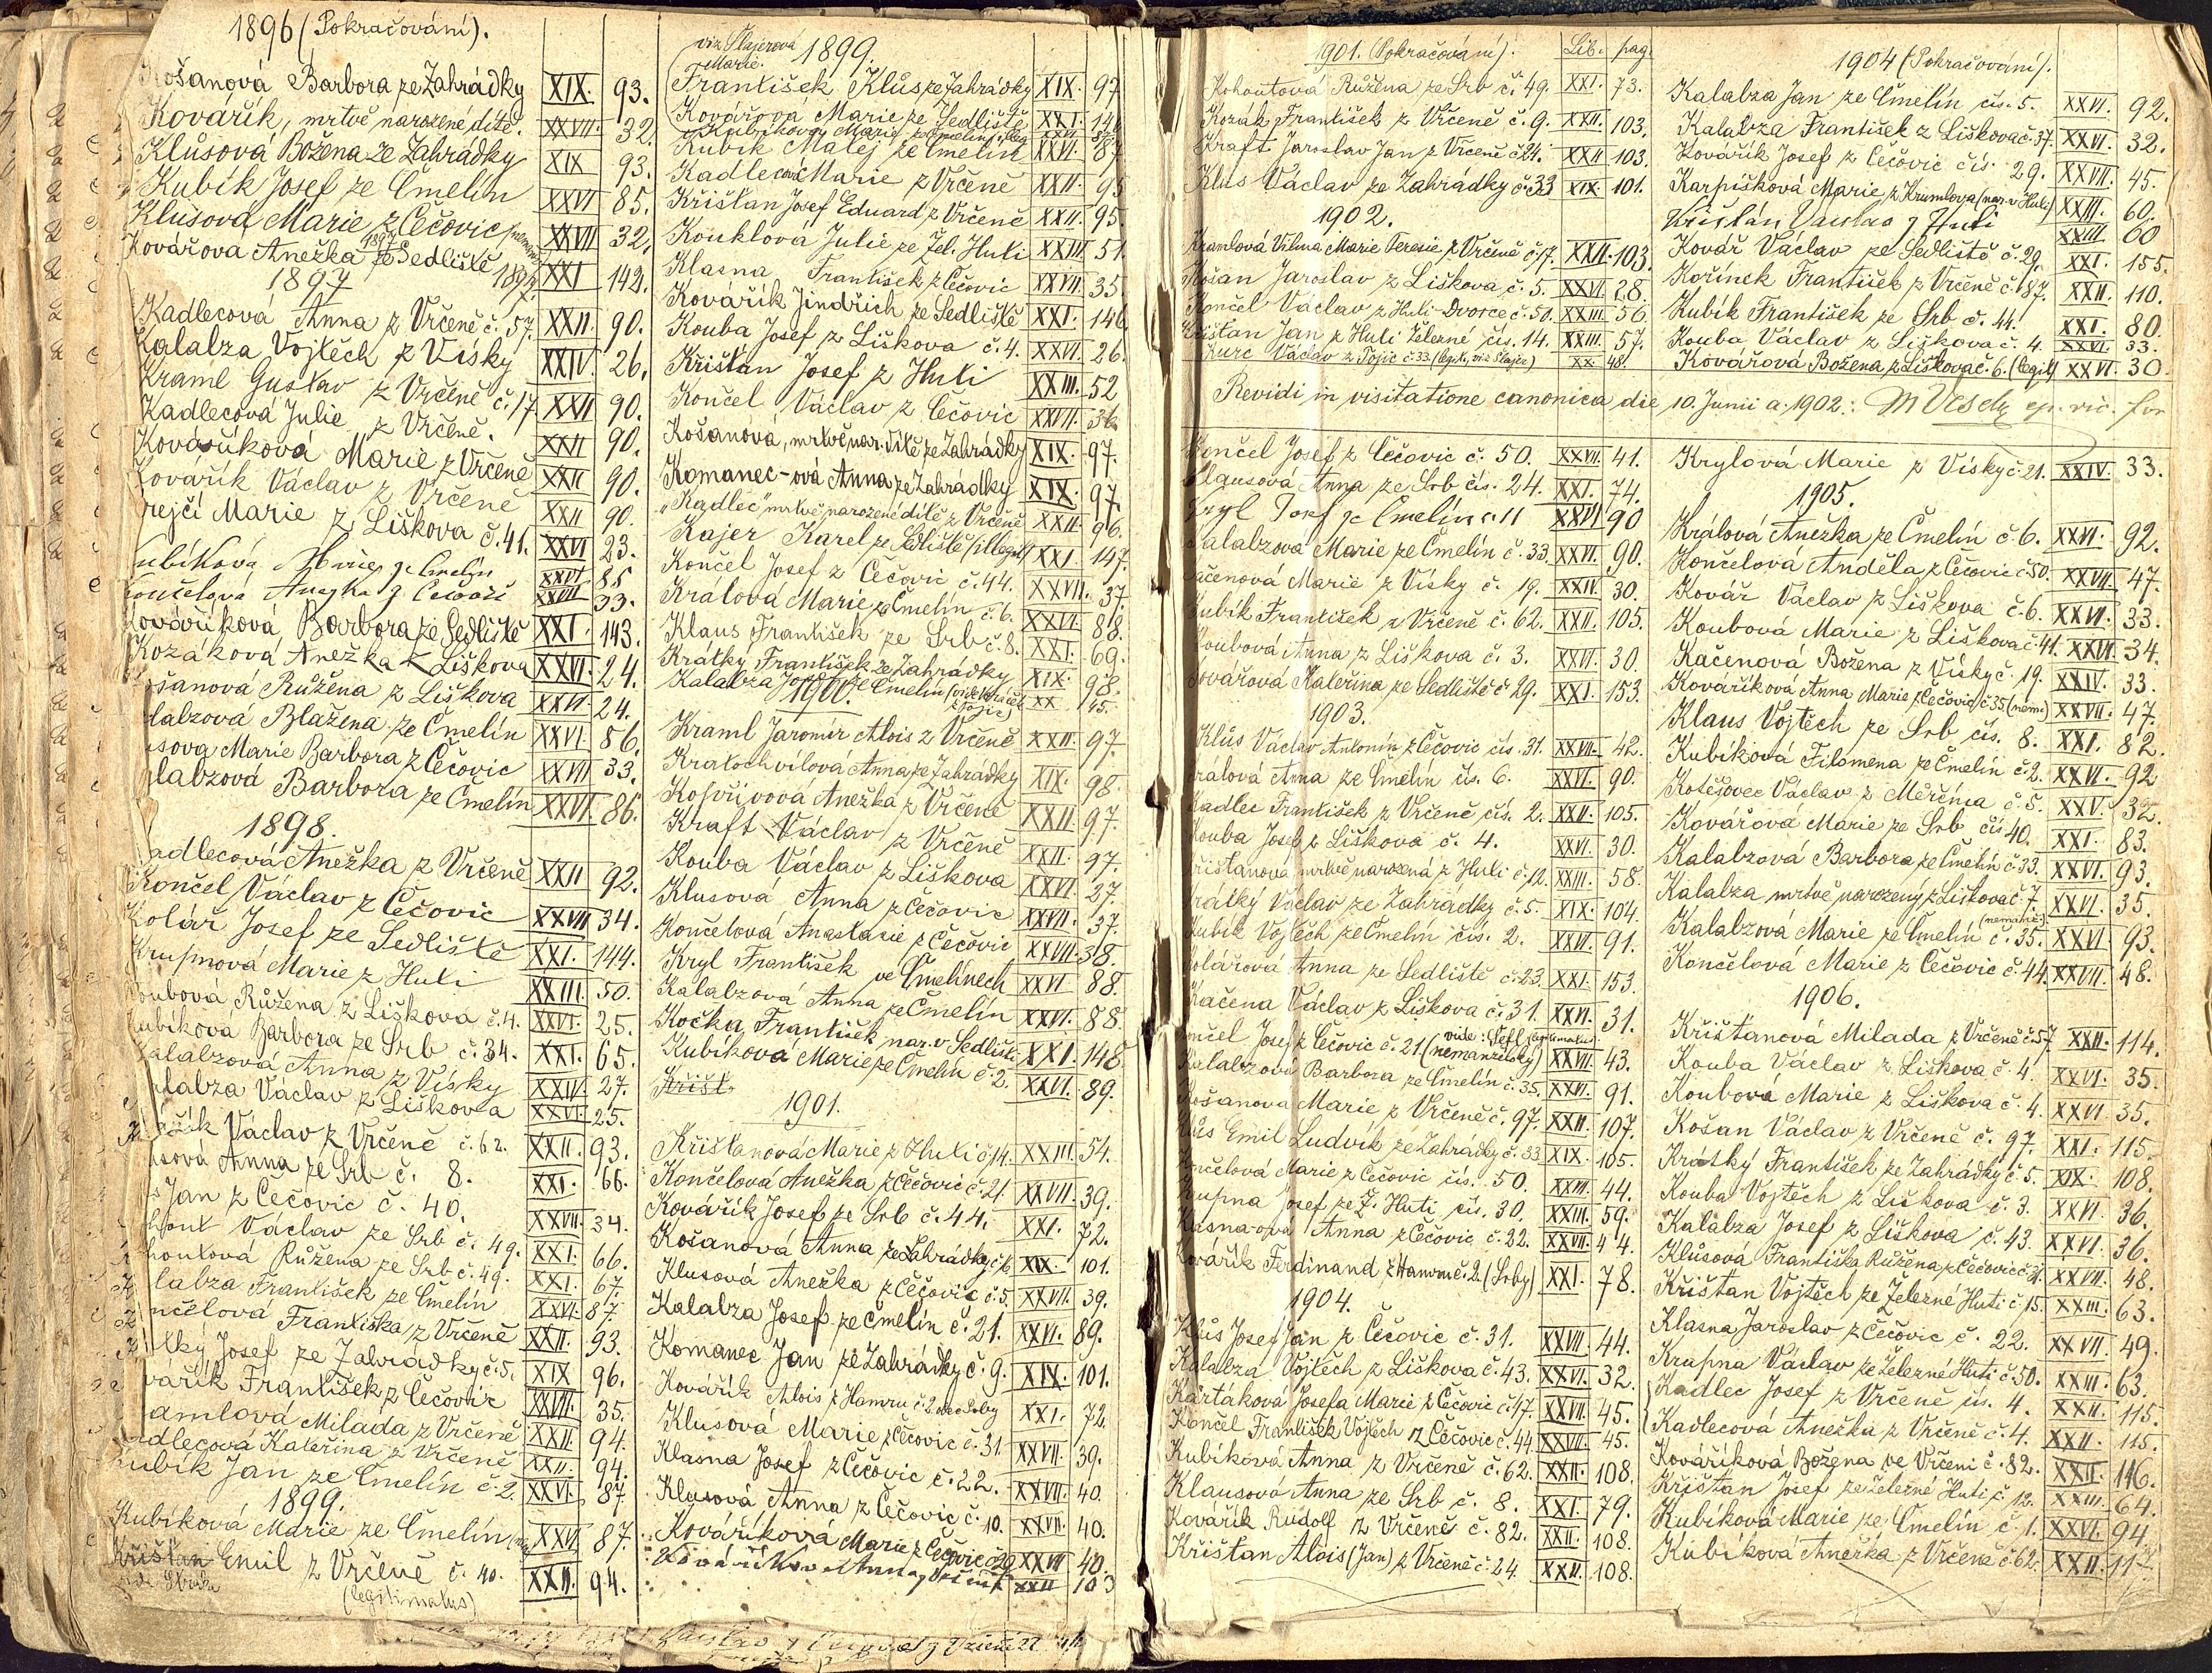 1896 (Pokračování).
Košanová Barbora ze Zahrádky XIX. 93.
Kovářík, mrtvě narozené dítě. XXVII. 32.
Klůsová Božena ze Zahrádky XIX 93.
Kubík Josef ze Čmelín XXVI 85.
Klusova Marie z Čečovic XXVII 32.
Kovářova Anežka ze Sedliště 1897 XXI 142.
1897
Kadlecová Anna z Vrčeně č. 57. XXII. 90.
Kalabza Vojtěch z Vísky XXIV. 26.
Kraml Gustav z Vrčeně č. 17. XXII 90.
Kadlecová Julie z Vrčeně. XXII 90.
Kovaříková Marie z Vrčeně XXII 90.
Kovářík Václav z Vrčeně XXII 90.
rejčí Marie z Liškova č. 41. XXVI 23.
ubíková Marie ze Čmelín XXVI 85
Končelová Anežka z Čečovic XXVII 33.
Kovaříková Barbora ze Sedliště XXI. 143.
Kozáková Anežka z Liškova XXVI. 24.
ošanová Růžena z Liškova XXVI. 24.
labzová Blažena ze Čmelín XXVI. 86.
usova Marie Barbora z Čečovic XXVII 33.
alabzová Barbora ze Čmelín XXVI. 86.
1898.
adlecová Anežka z Vrčeně XXII 92.
Končel Václav z Čečovic XXVII 34.
Kolář Josef ze Sedliště XXI. 144.
Krupnová Marie z Huti XXIII 50.
oubová Růžena z Liškova č. 4. XXVI. 25.
ubíková Barbora ze Srb č. 34. XXI. 65.
alabzová Anna z Vísky XXIV. 27.
alabza Václav z Liškova XXVI. 25.
ářík Václav z Vrčeně č. 62. XXII. 93.
usová Anna ze Srb č. 8. XXI. 66.
s Jan z Čečovic č. 40. XXVII. 34.
hout Václav ze Srb č. 49. XXI. 66.
houtová Růžena ze Srb č. 49. XXI. 67.
labza František ze Čmelín XXVI. 87.
nčelová Františka z Vrčeně XXII. 93.
tký Josef ze Zahrádky č. 5. XIX 96.
vářík František z Čečovic XXVII. 35.
amlová Milada z Vrčeně XXII. 94.
adlecová Kateřina z Vrčeně XXII. 94.
ubík Jan ze Čmelín č. 2. XXVI. 87.
1899.
Kubíková Marie ze Čmelín XXVI 87.
Křišťan Emil z Vrčeně č. 40. XXII. 94.
(legitimatus)
viz Šlajerová Marie.
1899.
František Klůs ze Zahrádky XIX. 97
Kovářová Marie ze Sedliště XXI. 146
Kubík Matěj ze Čmelín XXVI. 87
Kadlecová Marie z Vrčeně XXII. 95
Křišťan Josef Eduard z Vrčeně XXII. 95.
Kouklová Julie ze Žel. Huti XXIII 51.
Klasna František z Čečovic XXVII. 35
Kovářík Jindřich ze Sedliště XXI. 146.
Kouba Josef z Liškova č. 4. XXVI. 26.
Křišťan Josef z Huti XXIII. 52
Končel Václav z Čečovic XXVII. 36.
Košanová, mrtvě nar. dítě ze Zahrádky XIX. 97.
Komanec-ová Anna ze Zahrádky XIX. 97
"Kadlec" mrtvě narozené dítě z Vrčeně XXII. 96.
Kajer Karel ze Sedliště (illegit) XXI. 147.
Končel Josef z Čečovic č. 44. XXVII. 37.
Králova Marie ze Čmelín č. 6. XXVI. 88.
Klaus František ze Srb č. 8. XXI. 69.
Krátký František ze Zahrádky XIX. 98.
Kalabza Josef ze Čmelín XX 45.
1900.
Kraml Jaromír Alois z Vrčeně XXII. 97.
Kratochvílová Anna ze Zahrádky XIX. 98.
Kopřivová Anežka z Vrčeně XXII 97.
Kraft Václav z Vrčeně XXII. 97.
Kouba Václav z Liškova XXVI. 27.
Klusová Anna z Čečovic XXVII. 37.
Končelová Anastasie z Čečovic XXVII. 38.
Kryl František ve Čmelínech XXVI 88.
Kalabzová Anna ze Čmelín XXVI. 88.
Kočka František nar. v Sedlišti XXI. 148.
Kubíková Marie ze Čmelín č. 2. XXVI. 89.
Křišť.
1901.
Křišťanová Marie z Huti č. 14. XXIII. 54.
Končelová Anežka z Čečovic č. 21 XXVII. 39.
Kovářík Josef ze Srb č. 44. XXI. 72.
Košanová Anna ze Zahrádky č. 6 XIX. 101.
Klusová Anežka z Čečovic č. 5. XXVII. 39.
Kalabza Josef ze Čmelín č. 21. XXVI. 89.
Komanec Jan ze Zahrádky č. 9. XIX. 101.
Kovářík Alois z Hamru č. 2 XXI. 72.
Klusová Marie z Čečovic č. 31. XXVII. 39.
Klasna Josef z Čečovic č. 22. XXVII. 40.
Klusová Anna z Čečovic č. 10. XXVII. 40.
Kováříková Marie z Čečovic č. 29 XXVII 40.
Kováříková Anna z Vrčeně XXII 103
1901. (Pokračování). Lib. pag.
Kohoutová Růžena ze Srb č. 49. XXI. 73.
Kozák František z Vrčeně č. 9. XXII. 103.
Kraft Jaroslav Jan z Vrčeně č. 24. XXII 103.
Klus Václav ze Zahrádky č. 33 XIX. 101.
1902.
Kramlová Vilma Marie Teresie z Vrčeně č. 17. XXII. 103.
Košan Jaroslav z Liškova č. 5. XXVI. 28.
Končel Václav z Huti-Dvorce č. 50. XXIII. 56.
Křišťan Jan z Huti Železné čís. 14. XXIII. 57.
Kurc Václav z Pojic č. 33. (legit., viz Šlajs) XX. 48.
Revidi in visitatione canonica die 10. Junii a. 1902.:
Končel Josef z Čečovic č. 50. XXVII. 41.
Klausová Anna ze Srb čís. 24. XXI. 74.
Kryl Josef ze Čmelín č. 11 XXVI 90
Kalabzová Marie ze Čmelín č. 33. XXVI. 90.
Kačenová Marie z Vísky č. 19. XXIV. 30.
Kubík František z Vrčeně č. 62. XXII. 105.
Koubová Anna z Liškova č. 3. XXVI. 30.
Kovářova Kateřina ze Sedliště č. 29. XXI. 153.
1903.
Klůs Václav Antonín z Čečovic čís. 31. XXVII. 42.
Králová Anna ze Čmelín čís. 6. XXVI. 90.
Kadlec František z Vrčeně čís. 2. XXII. 105.
Kouba Josef z Liškova č. 4. XXVI. 30.
Křišťanova mrtvě narozená z Huti č. 12. XXIII. 58.
Krátký Václav ze Zahrádky č. 5. XIX. 104.
Kubík Vojtěch ze Čmelín čís. 2. XXVI. 91.
Kolářová Anna ze Sedliště č. 23. XXI. 153.
Kačena Václav z Liškova č. 31. XXVI. 31.
Končel Josef z Čečovic č. 21 (nemanželský) XXVII. 43.
Kalabzová Barbora ze Čmelín č. 35. XXVI. 91.
Košanova Marie z Vrčeně č. 97. XXII. 107.
Klůs Emil Ludvík ze Zahrádky č. 33 XIX. 105.
Končelová Marie z Čečovic čís. 50. XXVII. 44.
Krupna Josef ze Ž. Huti čís. 30. XXIII. 59.
Klasna-ová Anna z Čečovic č. 22. XXVII. 44.
Kovářík Ferdinand z Hamru č. 2. (Srby) XXI. 78.
1904.
Klůs Josef Jan z Čečovic č. 31. XXVII. 44.
Kalabza Vojtěch z Liškova č. 43. XXVI. 32.
Kartáková Josefa Marie z Čečovic č. 47. XXVII. 45.
Končel František Vojtěch z Čečovic č. 44. XXVII. 45.
Kubíková Anna z Vrčeně č. 62. XXII. 108.
Klausová Anna ze Srb č. 8. XXI. 79.
Kovářík Rudolf z Vrčeně č. 82. XXII. 108.
Křišťan Alois (Jan) z Vrčeně č. 24. XXII. 108.
1904 (Pokračování).
Kalabza Jan ze Čmelín čís. 5. XXVI. 92.
Kalabza František z Liškova č. 37. XXVI. 32.
Kovářík Josef z Čečovic čís. 29. XXVII. 45.
Karpíšková Marie z Krumlova (nar. v Huti) XXIII. 60.
Křišťán Václav z Huti XXIII 60
Kovář Václav ze Sedliště č. 29. XXI. 155.
Kořínek František z Vrčeně č. 87. XXII. 110.
Kubík František ze Srb č. 44. XXI. 80.
Kouba Václav z Liškova č. 4. XXVI. 33.
Kovářová Božena z Liškova č. 6. (legit) XXVI. 30.
Krylová Marie z Vísky č. 21. XXIV. 33.
1905.
Králová Anežka ze Čmelín č. 6. XXVI. 92.
Končelová Anděla z Čečovic č. 50. XXVII. 47.
Kovář Václav z Liškova č. 6. XXVI. 33.
Koubová Marie z Liškova č. 41. XXVI. 34.
Kačenová Božena z Vísky č. 19. XXIV. 33.
Kováříková Anna Marie z Čečovic č. 35 (nem.) XXVII. 47.
Klaus Vojtěch ze Srb čís. 8. XXI. 82.
Kubíková Filomena ze Čmelín č. 2. XXVI. 92
Kotěšovec Václav z Měrčína č. 5. XXV. 32.
Kovářová Marie ze Srb čís 40. XXI. 83.
Kalabzová Barbora ze Čmelín č. 33. XXVI. 93.
Kalabza mrtvě narozený z Liškova č. 7. XXVI. 35.
Kalabzová Marie ze Čmelín č. 35. (nemanž.) XXVI. 93.
Končelová Marie z Čečovic č. 44. XXVII. 48.
1906.
Křišťanová Milada z Vrčeně č. 57 XXII. 114.
Kouba Václav z Liškova č. 4. XXVI. 35.
Koubová Marie z Liškova č. 4. XXVI. 35.
Košan Václav z Vrčeně č. 97. XXI. 115.
Krátký František ze Zahrádky č. 5. XIX. 108.
Kouba Vojtěch z Liškova č. 3. XXVI. 36.
Kalabza Josef z Liškova č. 43. XXVI. 36.
Klůsová Františka Růžena z Čečovic č. 31. XXVII. 48.
Křišťan Vojtěch ze Železné Huti č. 15. XXIII. 63.
Klasna Jaroslav z Čečovic č. 22. XXVII. 49.
Krupna Václav ze Železné Huti č. 50. XXIII. 63.
Kadlec Josef z Vrčeně čís. 4. XXII. 115.
Kadlecová Anežka z Vrčeně č. 4. XXII. 115.
Kováříková Božena ve Vrčeni č. 82. XXII. 116.
Křišťan Josef ze Železné Huti č. 12. XXIII. 64.
Kubíková Marie ze Čmelín č. 1. XXVI. 94.
Kubíková Anežka z Vrčeně č. 62. XXII. 117.